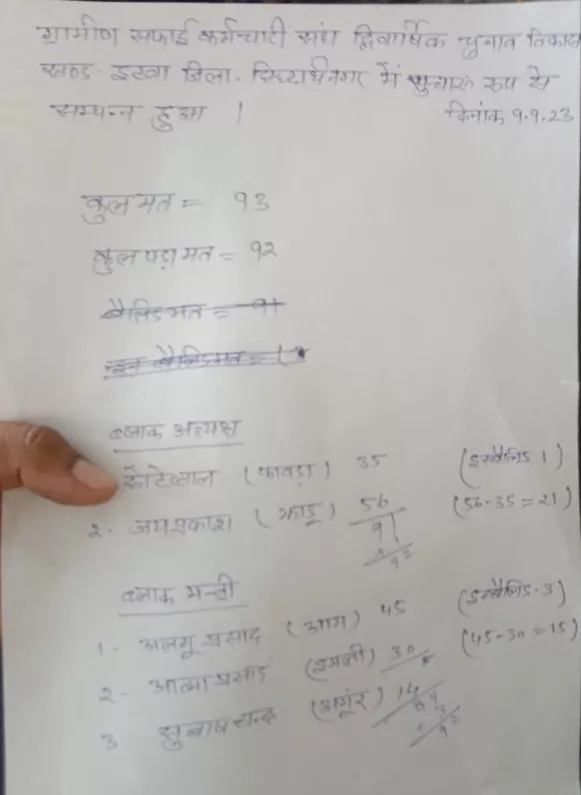 ग्रामीण सफाई कर्मचारी संघ द्विवार्षिक चुनाव विकास
खण्ड- इटवा जिला- सिध्दार्थनगर में सुचारू रूप से
सम्पन्न हुआ । दिनांक 9.9.23
कुल मत = 93
कुल पड़ा मत = 92
वैलिड मत = 91
इन वैलिड मत = 1
ब्लाक अध्यक्ष
(फावड़ा) 35 (इनवैलिड 1)
2- जयप्रकाश (झाड़ू) 56 (56-35=21)
91
1
92
ब्लाक मन्त्री
1- अलगू प्रसाद (आम) 45 (इनवैलिड-3)
2- आत्मा प्रसाद (इमली) 30 (45-30=15)
3 सुबाष चन्द्र (अंगूर) 14
89
3
92